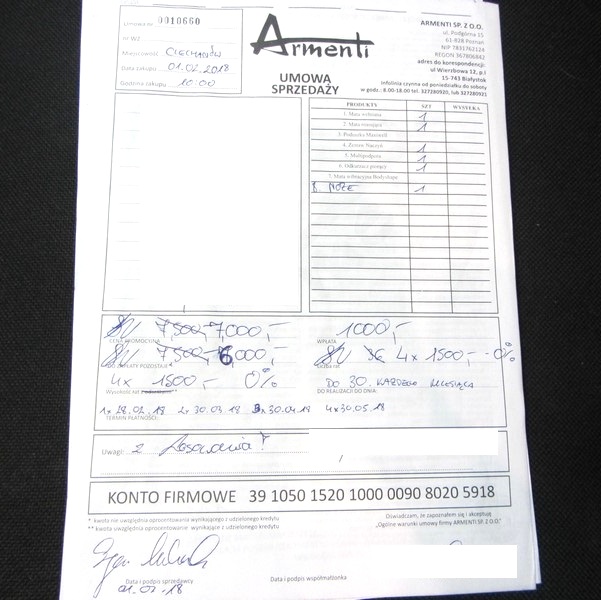 Umowa nr 0010660
nr WZ
Miejscowość CIECHANÓW
Data zakupu 01.02.2018
Godzina zakupu 10:00
Armenti
UMOWA
SPRZEDAŻY
ARMENTI SP. Z O.O.
ul. Podgórna 15
61-828 Poznań
NIP 7831762124
REGON 367806842
adres do korespondencji:
ul Wierzbowa 12, p.I
15-743 Białystok
infolinia czynna od poniedziałku do soboty
w godz.: 8.00-18.00 tel. 327280920, lub 327280921
PRODUKTY SZT WYSYŁKA
1. Mata wełniana 1
2. Mata masująca 1
3. Poduszka Maxwell
4. Zestaw Naczyń 1
5. Multipodgrza 1
6. Odkurzacz piorący 1
7. Mata wibracyjna Bodyshape
8. NOŻE 1
7,500,- 7000,-
CENA PROMOCYJNA
1000,-
WPŁATA
7500,- 6000,-
DO ZAPŁATY POZOSTAJE
36 4x 1500,- 0%
Liczba rat
4x 1500,- 0%
Wysokość rat
DO 30. KAŻDEGO MIESIĄCA
DO REALIZACJI DO DNIA:
1x 28.02.18 2x 30.03.18 3x 30.04.18 4x30.05.18
TERMIN PŁATNOŚCI:
Uwagi: z
KONTO FIRMOWE 39 1050 1520 1000 0090 8020 5918
* kwota nie uwzględnia oprocentowania wynikającego z udzielonego kredytu
** kwota uwzględnia oprocentowanie wynikające z udzielonego kredytu
Oświadczam, że zapoznałem się i akceptuję
„Ogólne warunki umowy firmy ARMENTI SP. Z O.O."
Data i podpis sprzedawcy
01.02.18
Data i podpis współmałżonka